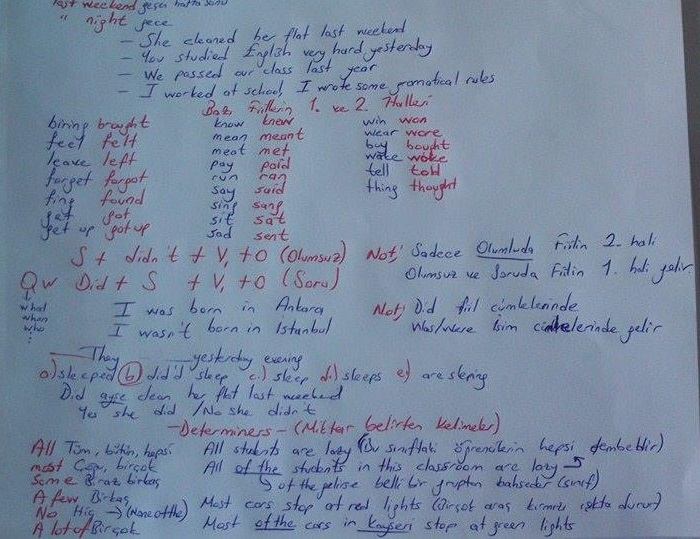 last weekend geçen hafta sonu
" night gece
- She cleaned her flat last weekend
- You studied English very hard yesterday
- We passed our class last year
- I worked at school, I wrote some gramatical rules
Bazı Fiillerin 1. ve 2. Halleri
biring brought know knew win won
feel felt mean meant wear wore
leave left meat met buy bought
forget forgot pay paid wake woke
fing found run ran tell told
get got say said thing thought
get up got up sing sang
sit sat
sad sent
S + didn't + V, +O (Olumsuz)
Qw Did + S + V, +O (Soru)
Not; Sadece Olumluda Fiilin 2. hali
Olumsuz ve Soruda Fiilin 1. hali gelir
what
when
who
I was born in Ankara
I wasn't born in Istanbul
Not; Did fiil cümlelerinde
Was/were isim cümlelerinde gelir
They yesterday evening
a) sleeped b) did'd sleep c.) sleep d.) sleeps e) are sleping
Did ayşe clean her flat last weekend
Yes she did / No she didn't
- Determiners - (Miktar belirten kelimeler)
All Tüm, bütün, hepsi All students are lazy (Bu sınıftaki öğrencilerin hepsi tembeldir)
most Çoğu, birçok All of the students in this classroom are lazy
Some Biraz birkaç of the gelirse belli bir gruptan bahseder (sınıf)
A few Birkaç
No Hiç → (None of the) Most cars stop at red lights (Birçok araç kırmızı ışıkta durur)
A lot of Birçok Most of the cars in Kayseri stop at green lights